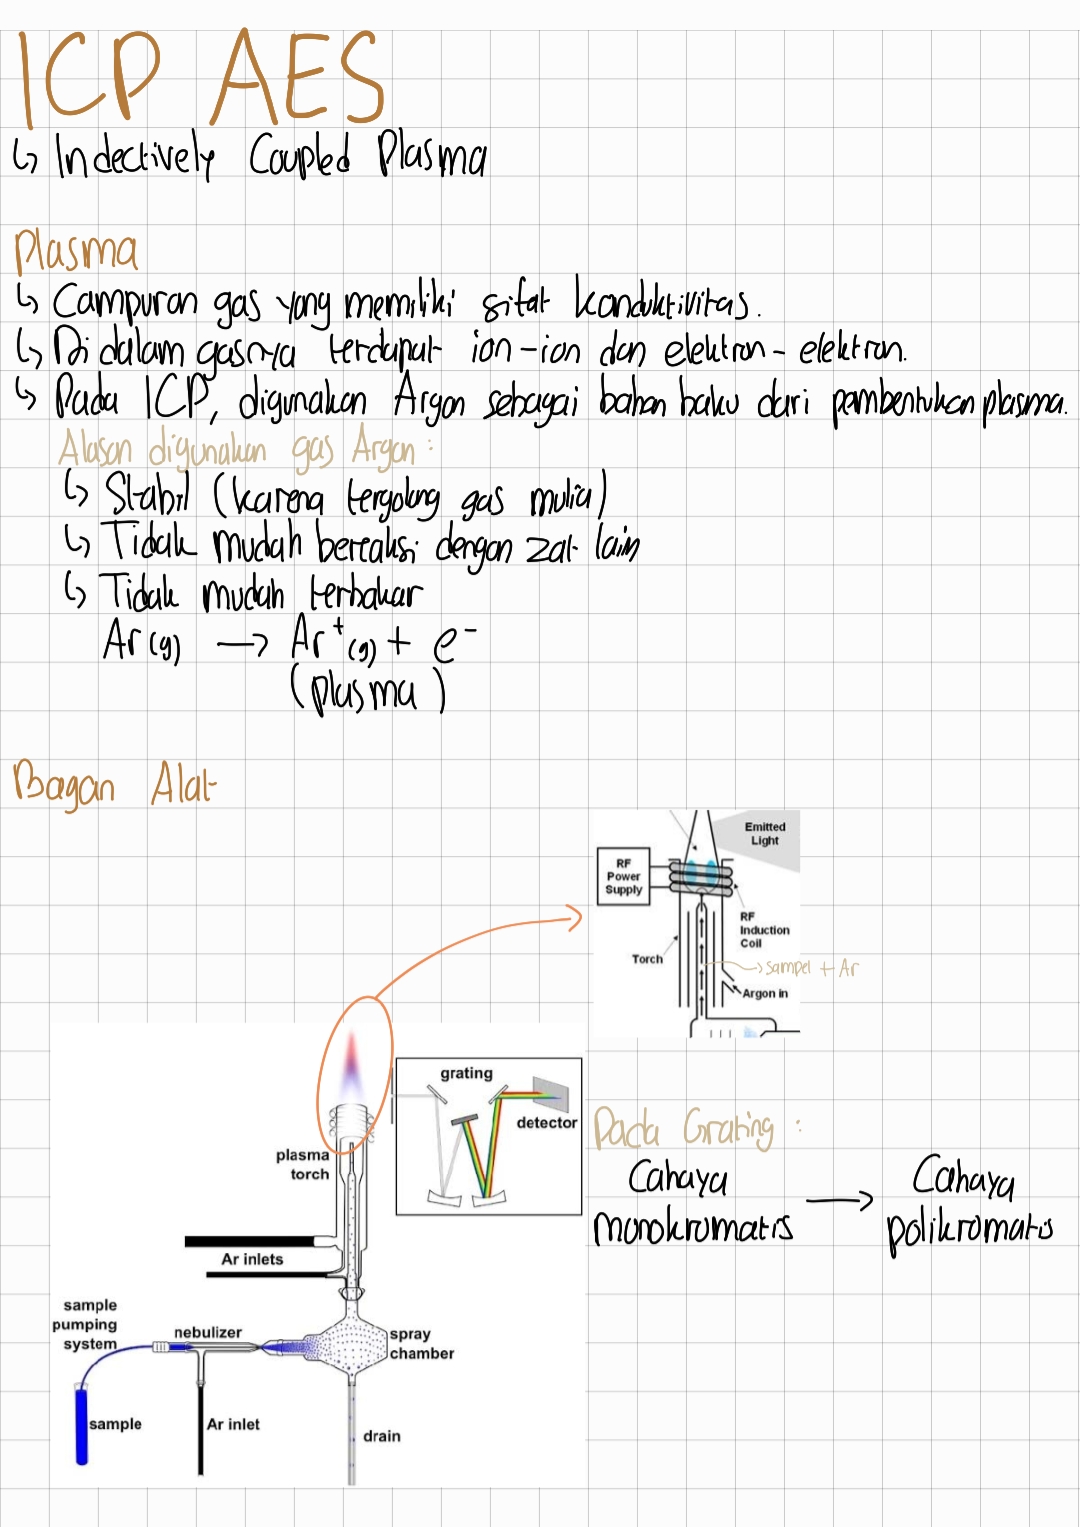 ICP AES
↳ Indectively Coupled Plasma
Plasma
↳ Campuran gas yang memiliki sifat konduktivitas.
↳ Di dalam gasnya terdapat ion-ion dan elektron-elektron.
↳ Pada ICP, digunakan Argon sebagai bahan baku dari pembentukan plasma.
Alasan digunakan gas Argon :
↳ Stabil (karena tergolong gas mulia)
↳ Tidak mudah bereaksi dengan zat lain
↳ Tidak mudah terbakar
Ar(g) → Ar⁺(g) + e⁻
(plasma)
Bagan Alat
Emitted
Light
RF
Power
Supply
RF
Induction
Coil
Torch
→ Sampel + Ar
Argon in
grating
detector
plasma
torch
Ar inlets
sample
pumping
system
nebulizer
spray
chamber
sample
Ar inlet
drain
Pada Grating :
Cahaya
monokromatis
→
Cahaya
polikromatis